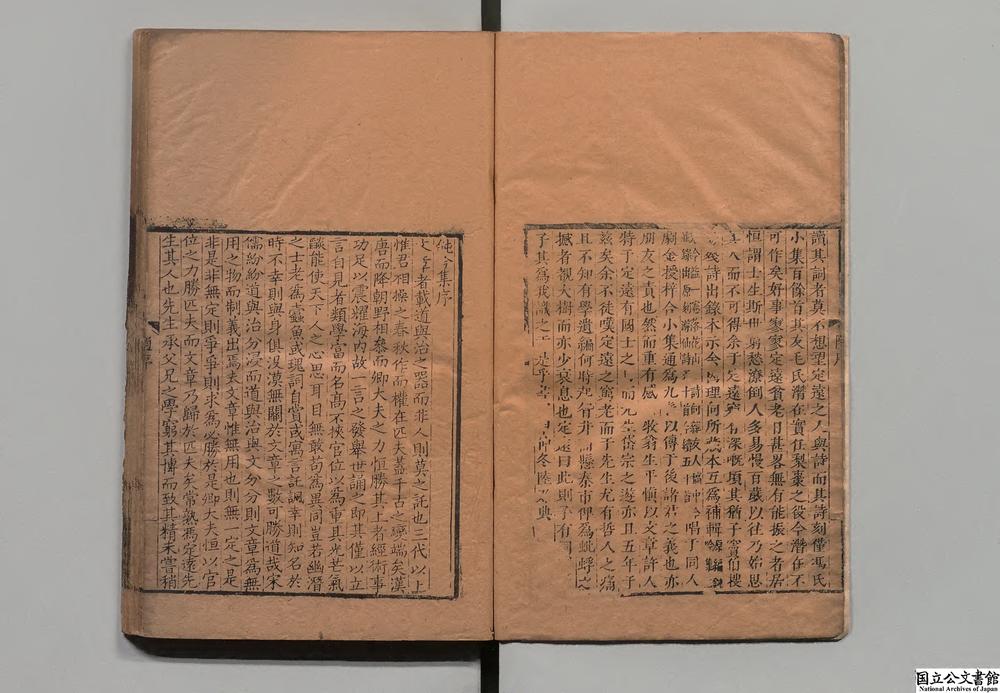 讀其詞者莫不想望定遠之人與詩而其詩刻僅馮氏
小集百餘首其友毛氏潛在實任梨棗之役今潛在不
可作矣好事寥寥定遠貧老日甚畧無有能振之者居
恒謂士生斯世窮愁潦倒人多易慢百歲以往乃始思
其人而不可得余于定遠竊有深嘅頃其猶子竇伯搜
詩出錄本示余為理向所藏本互為補輯
唱于同人
剞劂金授梓合小集通為九以傳于後諸君之義也亦
朋友之責也然而重有感牧翁生平慎以文章許人
特于定遠有國士之而九生岱宗之遊亦且五年于
茲矣余不徒嘆定遠之篤老而于先生尤有哲人之痛
且不知有學遺編何時懸泰市俾為蚍蜉之
撼者視大樹而亦少哀息也定遠曰此則子有
予其為我識之于是乎書冬陸典
鈍吟集序
文章者載道與治之器而非人則莫之託也三代以上
惟君相操之春秋作而權在匹夫蓋千古之變端矣漢
唐而降朝野相叅而卿大夫之力恒勝其上者經術事
功足以震耀海內故一言之發舉世誦之即其僅以立
言自見者類學富而名高不挾官位以為重其光芒氣
燄能使天下人之心思耳目無敢句為異同豈若幽潛
之士老為蠹魚或瑰詞自賞或寓言託諷幸則知名於
時不幸則與身俱沒漠無關於文章之數可勝道哉宋
儒紛紛道與治分浸而道與治與文分分則文章為無
用之物而制義出焉夫文章惟無用也則無一定之是
非是非無定則爭爭則求為必勝於是卿大夫恒以官
位之力勝匹夫而文章乃歸於匹夫矣常熟馮定遠先
生其人也先生承父兄之學窮其博而致其精未嘗稍
国立公文書館
National Archives of Japan